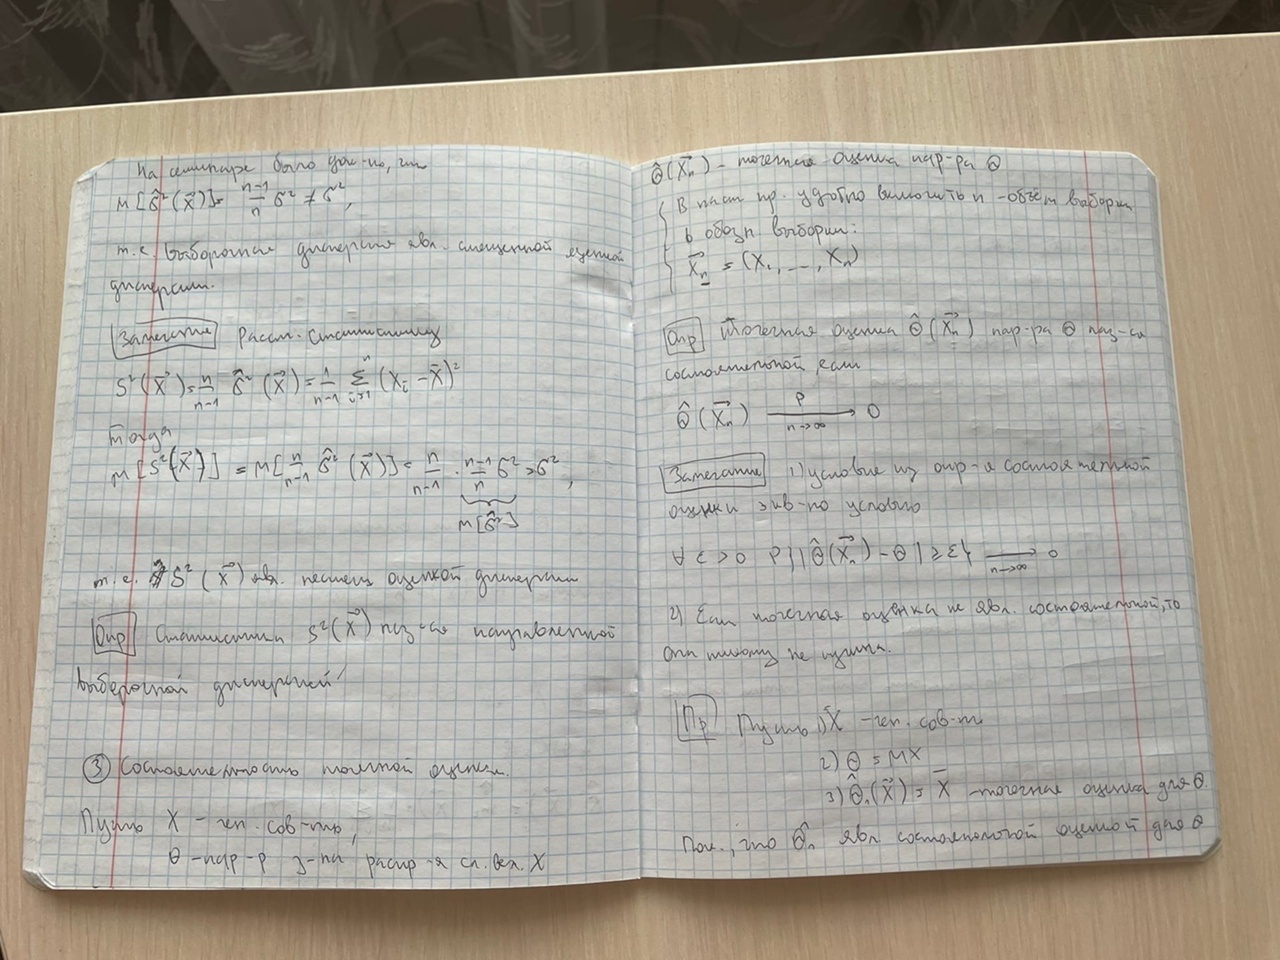 На семинаре было док-но, что
M[σ̂²(X⃗)] = n-1/n σ² ≠ σ²,
т.е. выборочная дисперсия явл. смещенной оценкой
дисперсии.
Замечание Рассм. статистику
S²(X⃗) = n/n-1 σ̂²(X⃗) = 1/n-1 Σ_{i=1}^{n} (Xᵢ - X̄)²
Тогда
M[S²(X⃗)] = M[n/n-1 σ̂²(X⃗)] = n/n-1 · n-1/n σ² = σ²,
M[σ̂²]
т.е. S²(X⃗) явл. несмещ оценкой дисперсии
Опр Статистика S²(X⃗) наз-ся исправленной
выборочной дисперсией
③ Состоятельность точечной оценки.
Пусть X - ген. сов-ть,
θ - пар-р з-на распр-я сл. вел. X
θ̂(X⃗ₙ) - точечная оценка пар-ра θ
В пр. удобно включить n - объём выборки
в обозн выборки:
X⃗ₙ = (X₁, ..., Xₙ)
Опр Точечная оценка θ̂(X⃗ₙ) пар-ра θ наз-ся
состоятельной, если
θ̂(X⃗ₙ) —P→ n→∞ θ
Замечание 1) условие из опр-я состоятельной
оценки экв-но условию
∀ε > 0 P{|θ̂(X⃗ₙ) - θ| ≥ ε} —→ n→∞ 0
2) Если точечная оценка не явл. состоятельной, то
она никому не нужна.
Пр Пусть 1) X - ген. сов-ть
2) θ = MX
3) θ̂ₙ(X⃗) = X̄ - точечная оценка для θ.
Пок., что θ̂ₙ явл состоятельной оценкой для θ